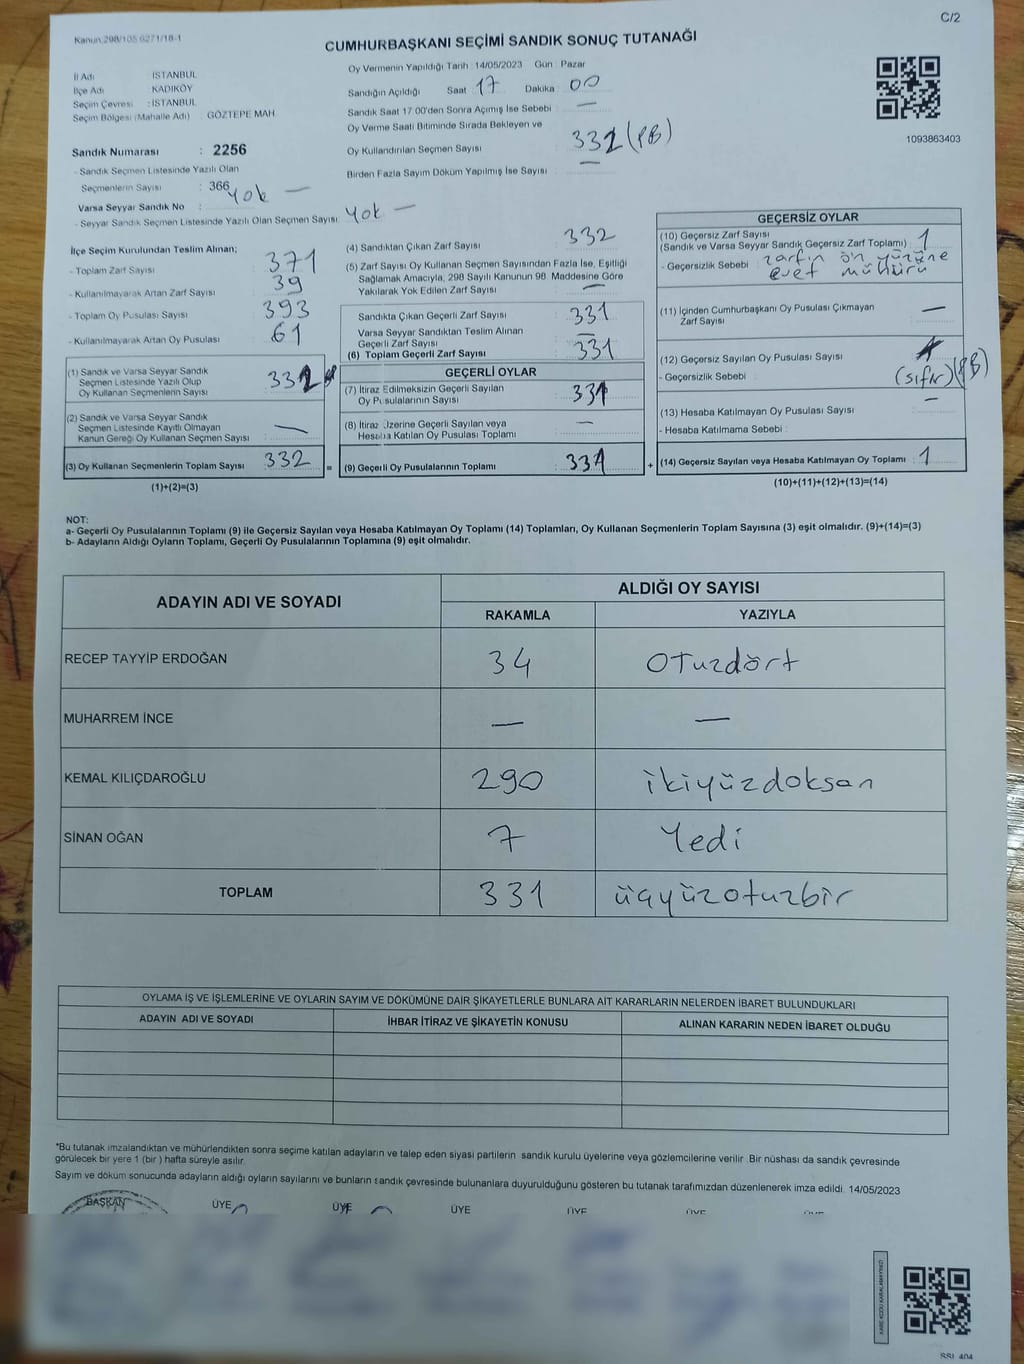 C/2
Kanun 298/105 6271/18-1
CUMHURBAŞKANI SEÇİMİ SANDIK SONUÇ TUTANAĞI
İl Adı : İSTANBUL
İlçe Adı : KADIKÖY
Seçim Çevresi : İSTANBUL
Seçim Bölgesi (Mahalle Adı) : GÖZTEPE MAH.
Oy Vermenin Yapıldığı Tarih : 14/05/2023 Gün : Pazar
Sandığın Açıldığı Saat 17 Dakika 00
Sandık Saat 17.00'den Sonra Açımış İse Sebebi : —
Oy Verme Saati Bitiminde Sırada Bekleyen ve
Oy Kullandırılan Seçmen Sayısı : 332 (PB)
Birden Fazla Sayım Döküm Yapılmış İse Sayısı : —
1093863403
Sandık Numarası : 2256
- Sandık Seçmen Listesinde Yazılı Olan
Seçmenlerin Sayısı : 366
Varsa Seyyar Sandık No : Yok —
- Seyyar Sandık Seçmen Listesinde Yazılı Olan Seçmen Sayısı : Yok —
İlçe Seçim Kurulundan Teslim Alınan;
- Toplam Zarf Sayısı : 371
- Kullanılmayarak Artan Zarf Sayısı : 39
- Toplam Oy Pusulası Sayısı : 393
- Kullanılmayarak Artan Oy Pusulası : 61
(1) Sandık ve Varsa Seyyar Sandık
Seçmen Listesinde Yazılı Olup
Oy Kullanan Seçmenlerin Sayısı : 332
(2) Sandık ve Varsa Seyyar Sandık
Seçmen Listesinde Kayıtlı Olmayan
Kanun Gereği Oy Kullanan Seçmen Sayısı : —
(3) Oy Kullanan Seçmenlerin Toplam Sayısı : 332
(1)+(2)=(3)
(4) Sandıktan Çıkan Zarf Sayısı : 332
(5) Zarf Sayısı Oy Kullanan Seçmen Sayısından Fazla İse, Eşitliği
Sağlamak Amacıyla, 298 Sayılı Kanunun 98. Maddesine Göre
Yakılarak Yok Edilen Zarf Sayısı : —
Sandıkta Çıkan Geçerli Zarf Sayısı : 331
Varsa Seyyar Sandıktan Teslim Alınan
Geçerli Zarf Sayısı : —
(6) Toplam Geçerli Zarf Sayısı : 331
GEÇERLİ OYLAR
(7) İtiraz Edilmeksizin Geçerli Sayılan
Oy Pusulalarının Sayısı : 331
(8) İtiraz Üzerine Geçerli Sayılan veya
Hesaba Katılan Oy Pusulası Toplamı : —
= (9) Geçerli Oy Pusulalarının Toplamı : 331 +
GEÇERSİZ OYLAR
(10) Geçersiz Zarf Sayısı
(Sandık ve Varsa Seyyar Sandık Geçersiz Zarf Toplamı) : 1
- Geçersizlik Sebebi : zarfın ön yüzüne
evet mühürü
(11) İçinden Cumhurbaşkanı Oy Pusulası Çıkmayan
Zarf Sayısı : —
(12) Geçersiz Sayılan Oy Pusulası Sayısı :
- Geçersizlik Sebebi : (sıfır) (PB)
(13) Hesaba Katılmayan Oy Pusulası Sayısı : —
- Hesaba Katılmama Sebebi :
(14) Geçersiz Sayılan veya Hesaba Katılmayan Oy Toplamı : 1
(10)+(11)+(12)+(13)=(14)
NOT:
a- Geçerli Oy Pusulalarının Toplamı (9) ile Geçersiz Sayılan veya Hesaba Katılmayan Oy Toplamı (14) Toplamları, Oy Kullanan Seçmenlerin Toplam Sayısına (3) eşit olmalıdır. (9)+(14)=(3)
b- Adayların Aldığı Oyların Toplamı, Geçerli Oy Pusulalarının Toplamına (9) eşit olmalıdır.
ADAYIN ADI VE SOYADI
ALDIĞI OY SAYISI
RAKAMLA YAZIYLA
RECEP TAYYİP ERDOĞAN 34 otuzdört
MUHARREM İNCE — —
KEMAL KILIÇDAROĞLU 290 ikiyüzdoksan
SİNAN OĞAN 7 Yedi
TOPLAM 331 üçyüzotuzbir
OYLAMA İŞ VE İŞLEMLERİNE VE OYLARIN SAYIM VE DÖKÜMÜNE DAİR ŞİKAYETLERLE BUNLARA AİT KARARLARIN NELERDEN İBARET BULUNDUKLARI
ADAYIN ADI VE SOYADI İHBAR İTİRAZ VE ŞİKAYETİN KONUSU ALINAN KARARIN NEDEN İBARET OLDUĞU
*Bu tutanak imzalandıktan ve mühürlendikten sonra seçime katılan adayların ve talep eden siyasi partilerin sandık kurulu üyelerine veya gözlemcilerine verilir. Bir nüshası da sandık çevresinde
görülecek bir yere 1 (bir) hafta süreyle asılır.
Sayım ve döküm sonucunda adayların aldığı oyların sayılarını ve bunların sandık çevresinde bulunanlara duyurulduğunu gösteren bu tutanak tarafımızdan düzenlenerek imza edildi. 14/05/2023
BAŞKAN ÜYE ÜYE ÜYE ÜYE ÜYE
KARE KODU KARALAMAYINIZ!